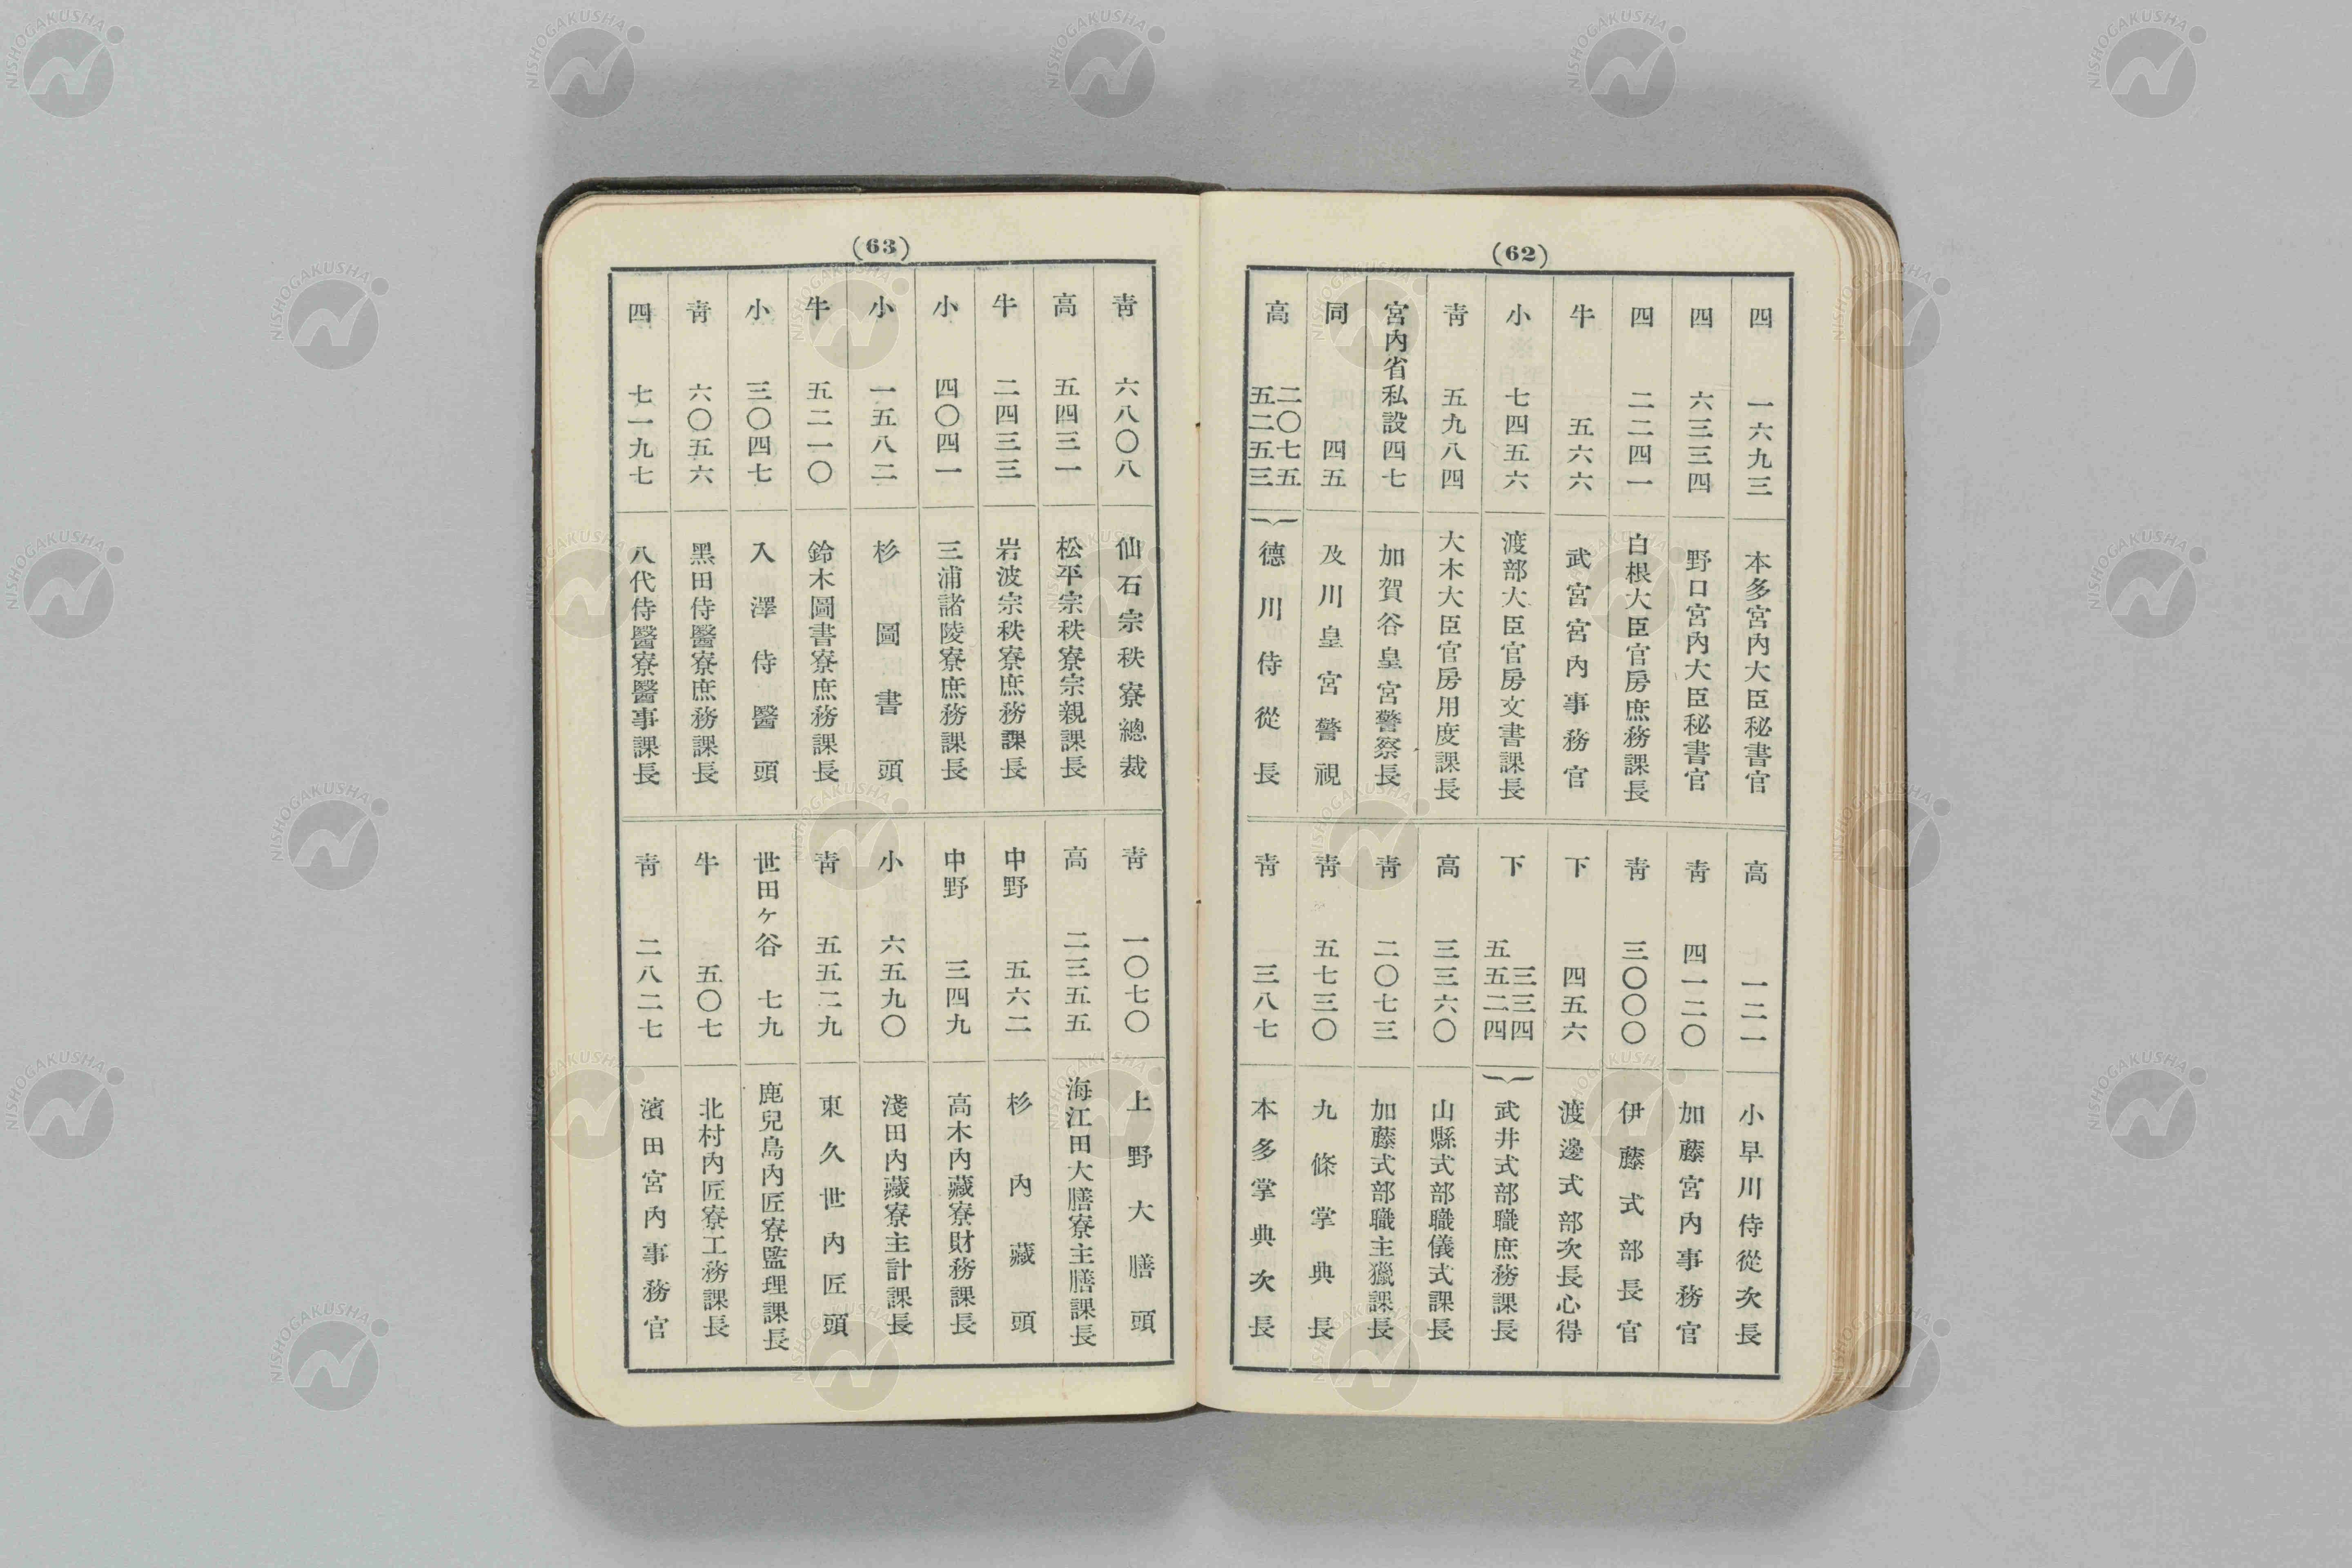 (62)
四 一六九三 本多宮內大臣秘書官
四 六三三四 野口宮內大臣秘書官
四 二二四一 白根大臣官房庶務課長
牛 五六六 武宮宮內事務官
小 七四五六 渡部大臣官房文書課長
靑 五九八四 大木大臣官房用度課長
宮內省私設四七 加賀谷皇宮警察長
同 四五 及川皇宮警視
高 二〇七五 五二五三 德川侍從長
高 一二一 小早川侍從次長
靑 四一二〇 加藤宮內事務官
靑 三〇〇〇 伊藤式部長官
下 四五六 渡邊式部次長心得
下 三三四 五五二四 武井式部職庶務課長
高 三三六〇 山縣式部職儀式課長
靑 二〇七三 加藤式部職主獵課長
靑 五七三〇 九條掌典長
靑 三八七 本多掌典次長
(63)
靑 六八〇八 仙石宗秩寮總裁
高 五四三一 松平宗秩寮宗親課長
牛 二四三三 岩波宗秩寮庶務課長
小 四〇四一 三浦諸陵寮庶務課長
小 一五八二 杉圖書頭
牛 五二一〇 鈴木圖書寮庶務課長
小 三〇四七 入澤侍醫頭
靑 六〇五六 黑田侍醫寮庶務課長
四 七一九七 八代侍醫寮醫事課長
靑 一〇七〇 上野大膳頭
高 二三五五 海江田大膳寮主膳課長
中野 五六二 杉內藏頭
中野 三四九 高木內藏寮財務課長
小 六五九〇 淺田內藏寮主計課長
靑 五五二九 東久世內匠頭
世田ヶ谷 七九 鹿兒島內匠寮監理課長
牛 五〇七 北村內匠寮工務課長
靑 二八二七 濱田宮內事務官
NISHOGAKUSHA